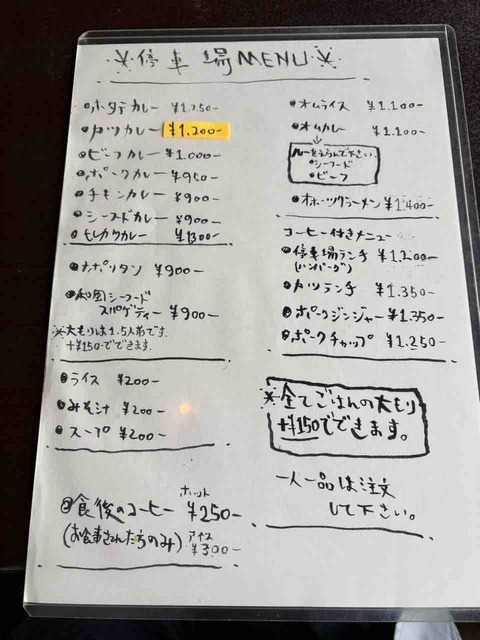 ※停車場MENU※
●ホタテカレー ¥1,250-
●カツカレー ¥1,200-
●ビーフカレー ¥1,000-
●ポークカレー ¥950-
●チキンカレー ¥900-
●シーフードカレー ¥900-
●モレカツカレー ¥1300-
●ナポリタン ¥900-
●和風シーフード
スパゲティー ¥900-
※大もりは1.5人前です。
+¥150-でできます。
●ライス ¥200-
●みそ汁 ¥200-
●スープ ¥200-
●食後のコーヒー ホット ¥250-
(お食事された方のみ) アイス ¥300-
●オムライス ¥1,100-
●オムカレー ¥1,100-
ルーをえらんで下さい。
●シーフード
●ビーフ
●オホーツクラーメン ¥1,400-
コーヒー付きメニュー
●停車場ランチ ¥1,200-
(ハンバーグ)
●カツランチ ¥1,350-
●ポークジンジャー ¥1,350-
●ポークチャップ ¥1,250-
※全てごはんの大もり
+¥150でできます。
一人一品は注文
して下さい。